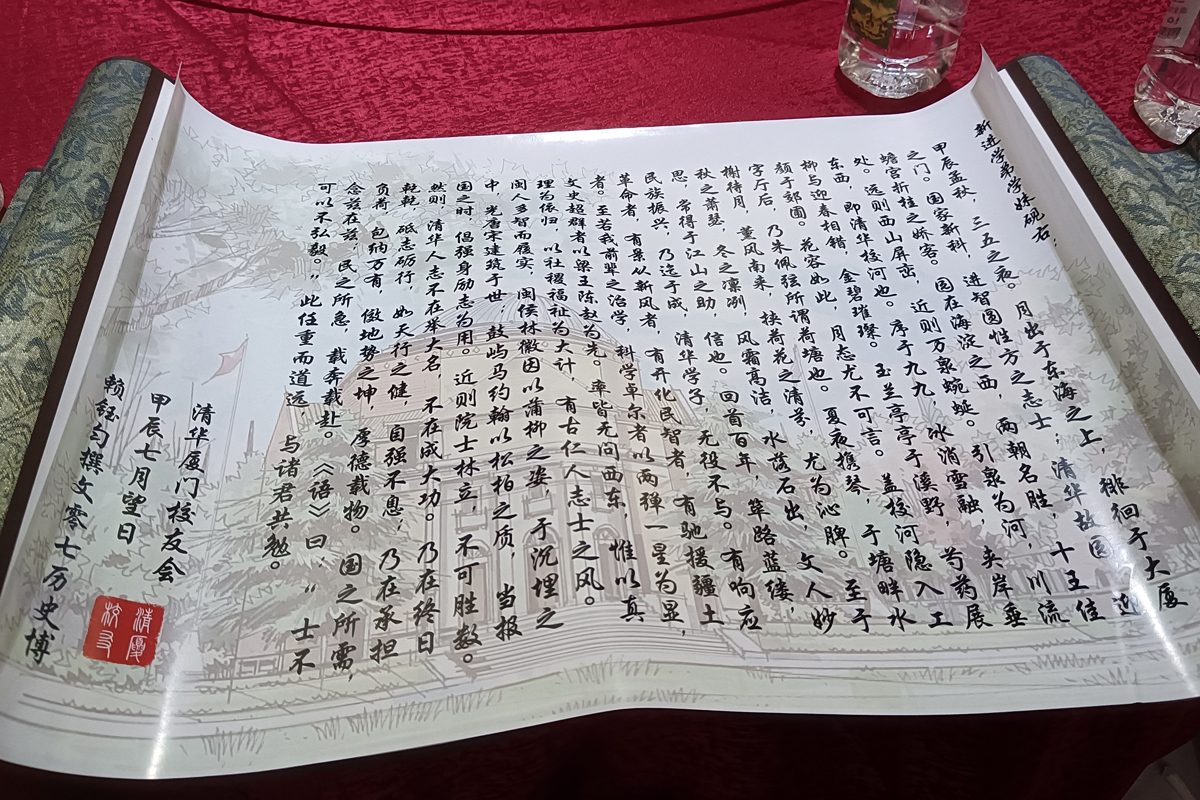 新进学弟学妹砚右：
甲辰孟秋，三五之夜。月出于东海之上，徘徊于大厦
之门。国家新科，进智圆性方之志士；清华故园，迎
蟾宫折桂之娇客。园在海淀之西，两朝名胜，十五佳
处。远则西山屏峦，近则万泉蜿蜒。引泉为河，川流
东西，即清华校河也。序于九九，冰消雪融，夹岸垂
柳与迎春相错，金碧璀璨。玉兰亭亭于溪野，芍药展
颜于郊圃。花容如此，月志尤不可言。盖校河隐入工
字厅后，乃朱佩弦所谓荷塘也。夏夜携琴，于塘畔水
榭待月，薰风南来，挟荷花之清芬，尤为沁脾。至于
秋之萧瑟，冬之凛冽，风霜高洁，水落石出，文人妙
思，常得于江山之助，信也。回首百年，筚路蓝缕，
民族振兴，乃迄于成，清华学子，无役不与。有响应
革命者，有景从新风者，有开化民智者，有驰援疆土
者。至若我前辈之治学，科学卓尔者以两弹一星为显，
文史超群者以梁王陈赵为先。率皆无问西东，惟以真
理为依归，以社稷福祉为大计，有古仁人志士之风。
闽人多智而履实，闽侯林徽因以蒲柳之姿，于沉埋之
中，光唐宋建筑于世，鼓屿马约翰以松柏之质，当报
国之时，倡强身励志为用。近则院士林立，不可胜数。
然则，清华人志不在举大名，不在成大功。乃在终日
乾乾，砥志砺行，如天行之健，自强不息；乃在承担
负荷，包纳万有，傚地势之坤，厚德载物。国之所需，
念兹在兹；民之所急，载奔载赴。《语》曰：“士不
可以不弘毅。”此任重而道远，与诸君共勉。
清华厦门校友会
甲辰七月望日
赖钰匀撰文零七万史博
清厦
校友